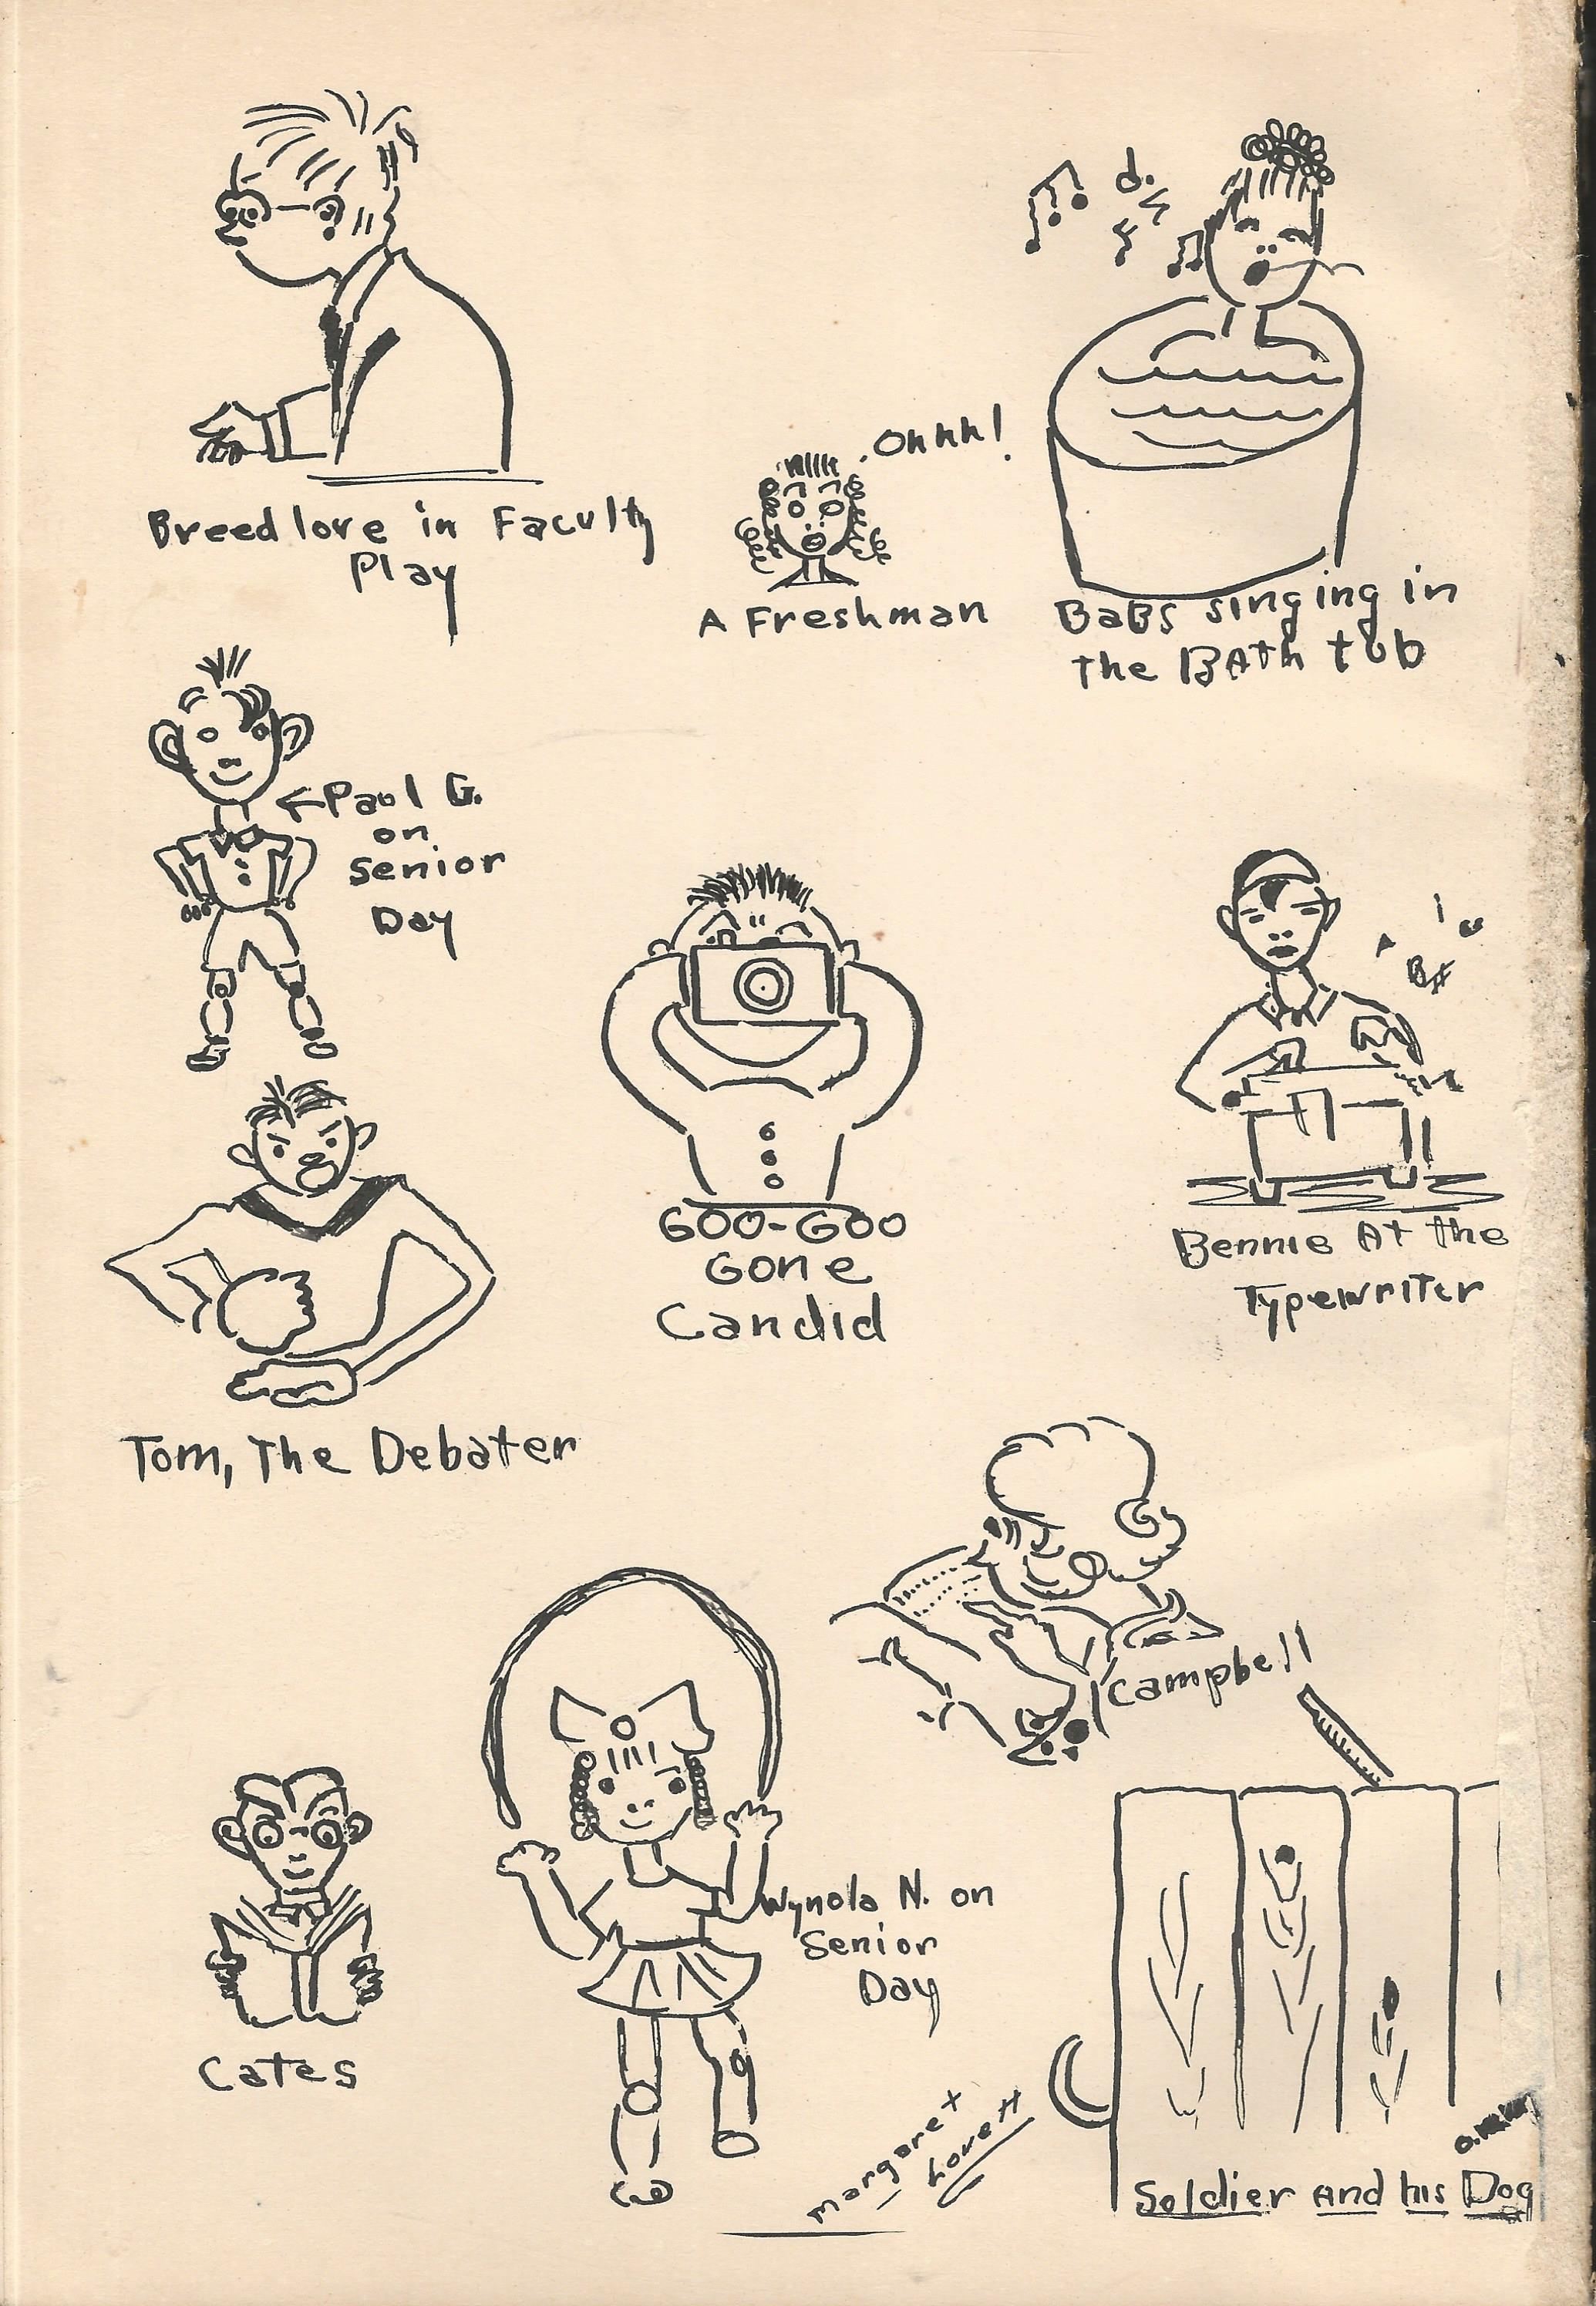 Breedlove in Faculty
Play
Ohhh!
A Freshman
BaBs singing in
the BAth tub
Paul G.
on
Senior
Day
Goo-Goo
Gone
Candid
Bennie At the
Typewriter
Tom, The Debater
Campbell
Cates
Wynola N. on
Senior
Day
Margaret
Lovett
Soldier and his Dog